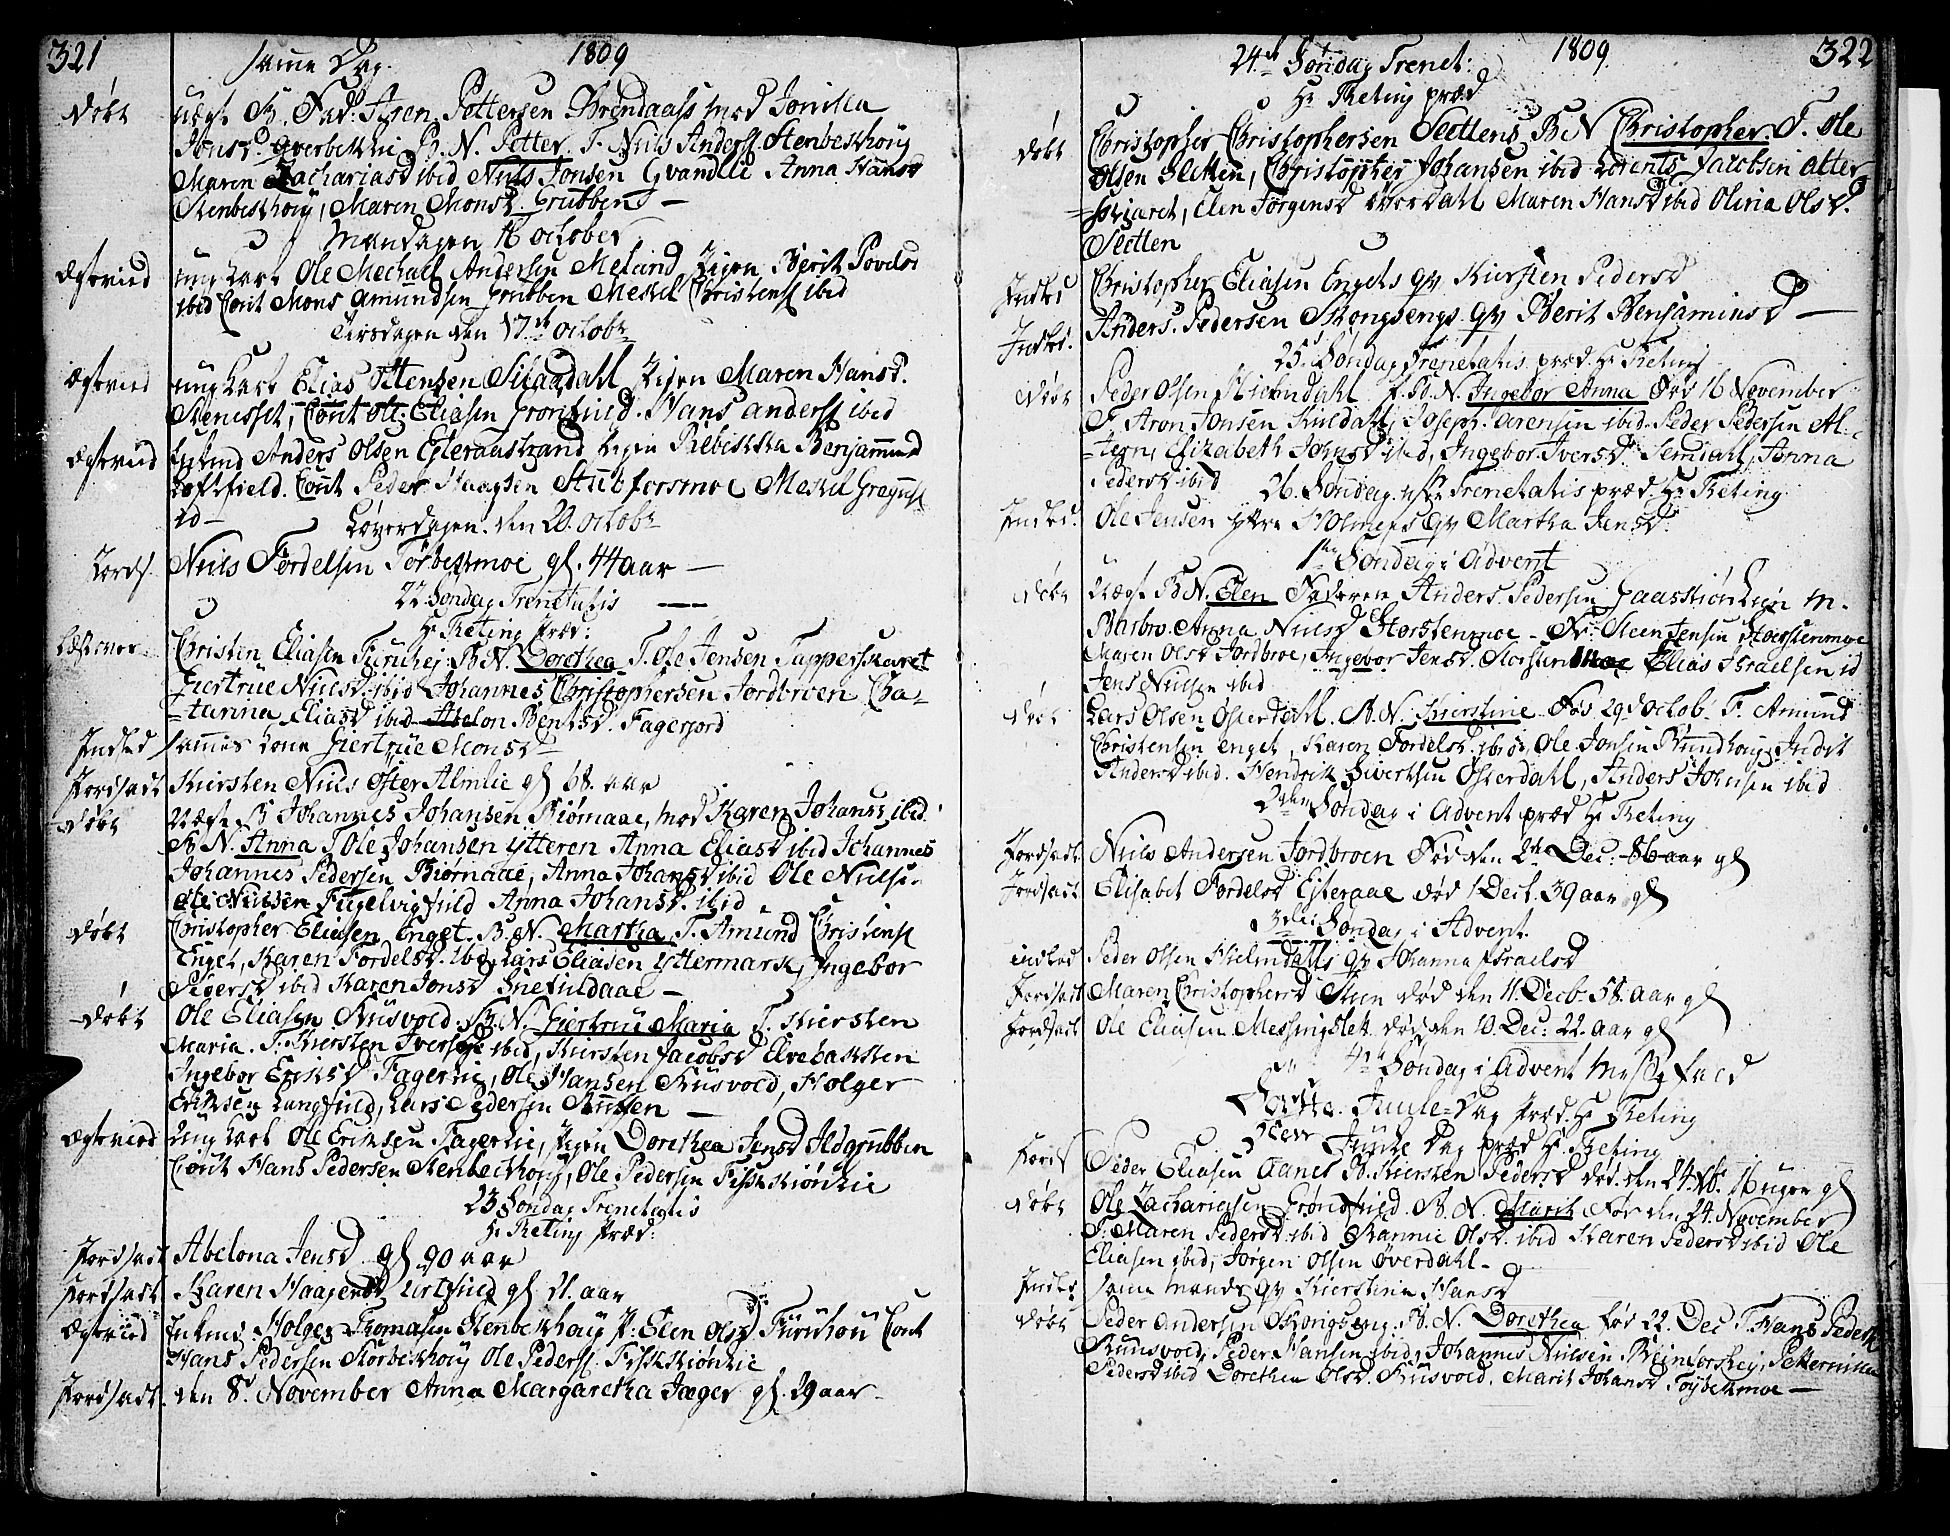 321 samme Dag. 1809
Døbt uægt B. Fad. Iver Pettersen Brendaass mod Jonilla
Jonsd. Qverbeklie B. N. Petter. F. Niels Anders. Stenbekhøig
Maren Zachariasd ibid Niels Jonsen Qvandlie Anna Hansd
Stenbekhøig, Maren Monsd. Grubben
Mandagen 16 October
Ægtevied ung Karl Ole Mechael Andersen Meland Pigen Berit Povels
ibid Cont Mons Amundsen Grubben Mekel Christens ibid
Tirsdagen den 17de Octobr
Ægteviet ung Karl Elias Ottensen Straadahl Pigen Maren Hansd.
Steniset, Cont Ott. Eliasen Grønfield. Hans Anders ibid
Ægteviid Anders Olsen Ejteraastrand Pigen Rebekka Benjamind
Loftfield. Cont Peder Haagsen Stubforsmoe Mekel Gregers
id
Løverdagen den 20 Octobr
Jords. Niels Fordelsen Tørbekmoe gl. 44 aar
22 Søndag Trenetatis
Hr Keting Præd:
Christen Eliasen Furuhej. B. N. Dorethea F. Ole Jensen Tapperskaret
Giertrue Nielsd ibid Johannes Christophersen Jordbroen Cha-
tarina Eliasd ibid Abelon Bentsd. Fagerjord
Indled sammes Kone Giertrue Monsd
Jordsadt Kiersten Niels Øster Almlie gl 68. aar
Døbt Uægt B Johannes Johansen Biørnaae, mod Karen Johans ibid.
B N. Anna F Ole Johansen ytteren Anna Eliasd ibid Johannes
Johannes Pedersen Biørnaae, Anna Johansd ibid Ole Niels.
Ole Nielsen Fugelvigfield Anna Johansd. ibid
Døbt Christopher Eliasen Enget. B. N. Martha, F. Amund Christens
Enget, Karen Fordelsd. ibd. Lars Eliasen Yttermark, Ingebor
Pedersd ibid Karen Jonsd Snefieldaae
Døbt Ole Eliasen Rusvold. B. N. Giertrue Maria F. Kiersten
Maria. F. Kiersten Ivers ibid, Kiersten Jacobsd Elvebakken
Ingebor Eriksd Fagerlie, Ole Hansen Rusvold, Holger
Eriksen Langfield, Lars Pedersen
Ægteviid Ung Karl Ole Eriksen Fagerlie, Pigen Dorethea Jensd Ildgrubben
Cont Hans Pedersen Stenbekhøig, Ole Pedersen Fiskkiønlie
23 Søndag Trenetatis
Hr Keting Præd:
Jordsadt Abelona Jensd gl 90 aar
Jordsadt Karen Haagensd gl 21. aar
Ægteviid Enkmd Holger Thomasen Stenbekhøig P. Elen Olsd Furuhøu Cont
Hans Pedersen Storbekhøig Ole Peders. Fiskkiønlie
Jordsadt. den 8d November Anna Margaretha Jæger gl. 29 aar
24de Søndag Trenet: 1809. 322
Hr Keting præd
Døbt Christopher Christophersen Slettens B N Christopher. F. Ole
Olsen Sletten, Christopher Johansen ibid Lorents Jacobsen Alter
Elen Jørgensd Øverdahl Maren Hansd ibid Olina Olsd.
Sletten
Indled Christopher Eliasen Engets qv Kiersten Pedersd
Indled. Anders Pedersen Skongsengs qv Berit Benjaminsd
25. Søndag Trenetatis præd. Hr Keting
Døbt Peder Olsen Hielmdahl B. N. Ingebor Anna Fød 16 November
F. Aron Jonsen Kieldahl, Joseph Arensen ibid. Peder Pedersen Al-
tern, Elizabeth Johnsd ibid, Ingebor Iversd Semdahl, Anna
Pedersd ibid 26. Søndag efter Trenetatis præd. Hr Keting
Indled. Ole Jensen ytre Holmens qv Martha Jensd.
1ste Søndag i Advent
Døbt Uægt B N. Elen Faderen Anders Pedersen Gaaskiønlien M.
Barbro Anna Nielsd Storstenmoe. Fr. Steen Jensen Storstenmoe
Maren Olsd Jordbroe, Ingebor Jensd. Storstenmoe Elias Israelsen id
Jens Nielsen ibid
Døbt Lars Olsen Østerdahl. B. N. Kierstine Fød 29d Octob. F. Amund
Christensen Enget, Karen Fordelsd. ibid, Ole Jonsen Brundhoug Indit
Andersd ibid. Hendrik Sivertsen Østerdahl, Anders Johnsen ibid
2den Søndag i Advent præd Hr Keting
Jordsadt Niels Andersen Jordbroen Død den 2d Dec: 86 aar gl
Jordsadt Elisabet Fordelsd Ejteraae Død 1 Dect. 39 aar gl
3die Søndag i Advent.
Indled Peder Olsen Hielmdalls qv Johanna Israelsd
Jordsadt Maren Christophersd Steen død den 11. Decb. 58. aar gl
Jordsadt Ole Eliasen Messingslett død den 10. Dec: 22. aar gl
4de Søndag i Advent Messefald
Første Juule Dag Præd. Hr Keting
Juule Dag præd Hr Keting
Jords Peder Eliasen Aanes B. Kiersten Pedersd død den 24. 16 uger gl
Døbt Ole Zachariasen Grønfield. B. N. Marit Fød den 24. November
F. Maren Pedersd ibid Rannie Olsd ibid Karen Pedersd ibid Ole
Eliasen ibid, Jørgen Olsen Øverdahl
Indled samme mands qv Kierstina Hansd
Døbt Peder Andersen Skongseng. B. N. Dorethea Fød 22. Dec F. Hans Peders
Rusvold, Peder Hansen ibid, Johannes Nielsen Reinforshej, Peternilla
Pedersd ibid Dorethea Olsd. Rusvold. Marit Johansd Tøybekmoe